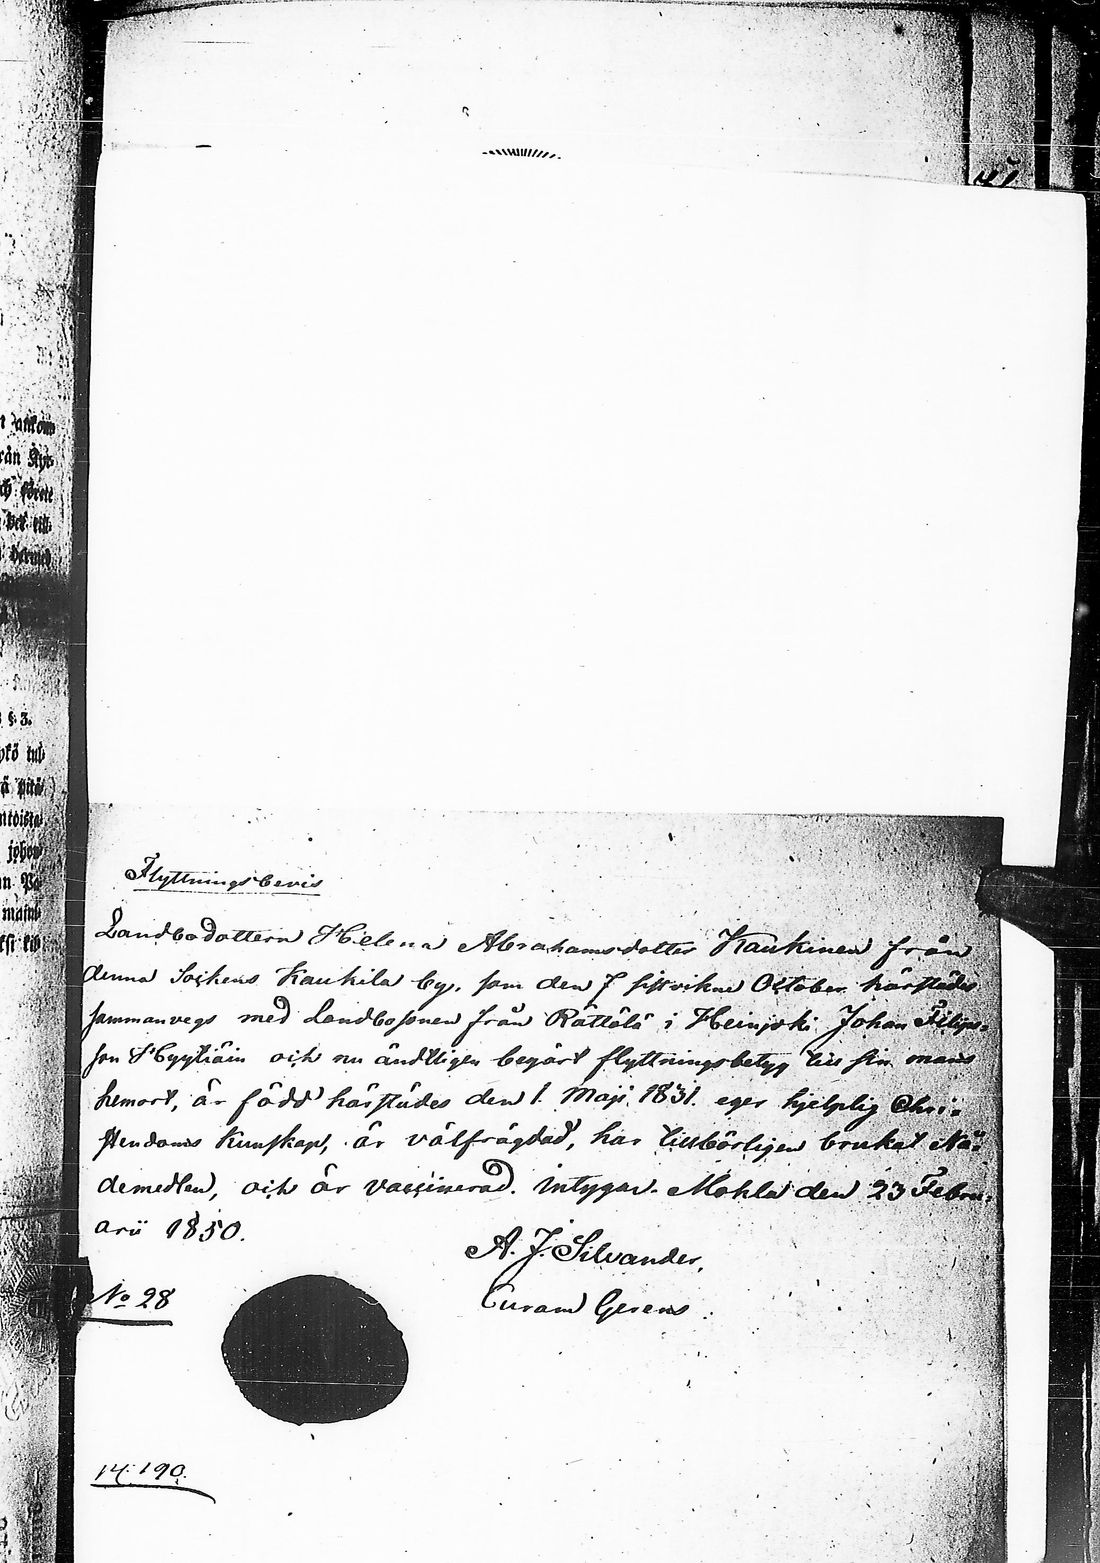 41
t ankom
rån Kyr-
ch förete
hermed
§ 3.
Flyttningsbevis
Landbodottern Helena Abrahamsdotter Kaukinen från
denna Sockens Kauhila by, som den 7 sistvikne October härstädes
sammanvegs med Landbosonen från Rättälä i Heinjoki Johan Filips-
son Hyytiäin och nu ändtligen begärt flyttningsbetyg till sin mans
hemort, är född härstädes den 1. Maji 1831. eger hjelplig Chri-
stendoms Kunskap, är välfrägdad, har tillbörligen brukat Nå-
demedlen, och är vaccinerad. Intygar. Mohla den 23 Febru-
arii 1850.
A. J. Silvander,
Curam Gerens.
No 28
14. 190.